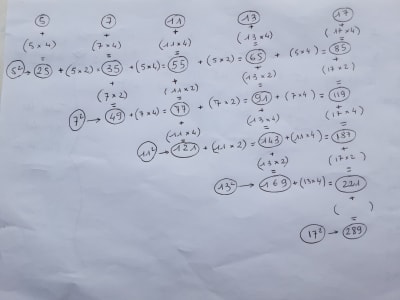 5 7 11 13 17
+ + + + +
(5×4) (7×4) (11×4) (13×4) (17×4)
= = = = =
5² → 25 + (5×2) = 35 + (5×4) = 55 + (5×2) = 65 + (5×4) = 85
+ + + +
(7×2) (11×2) (13×2) (17×2)
= = = =
7² → 49 + (7×4) = 77 + (7×2) = 91 + (7×4) = 119
+ + +
(11×4) (13×4) (17×4)
= = =
11² → 121 + (11×2) = 143 + (11×4) = 187
+ +
(13×2) (17×2)
= =
13² → 169 + (13×4) = 221
+
( )
=
17² → 289